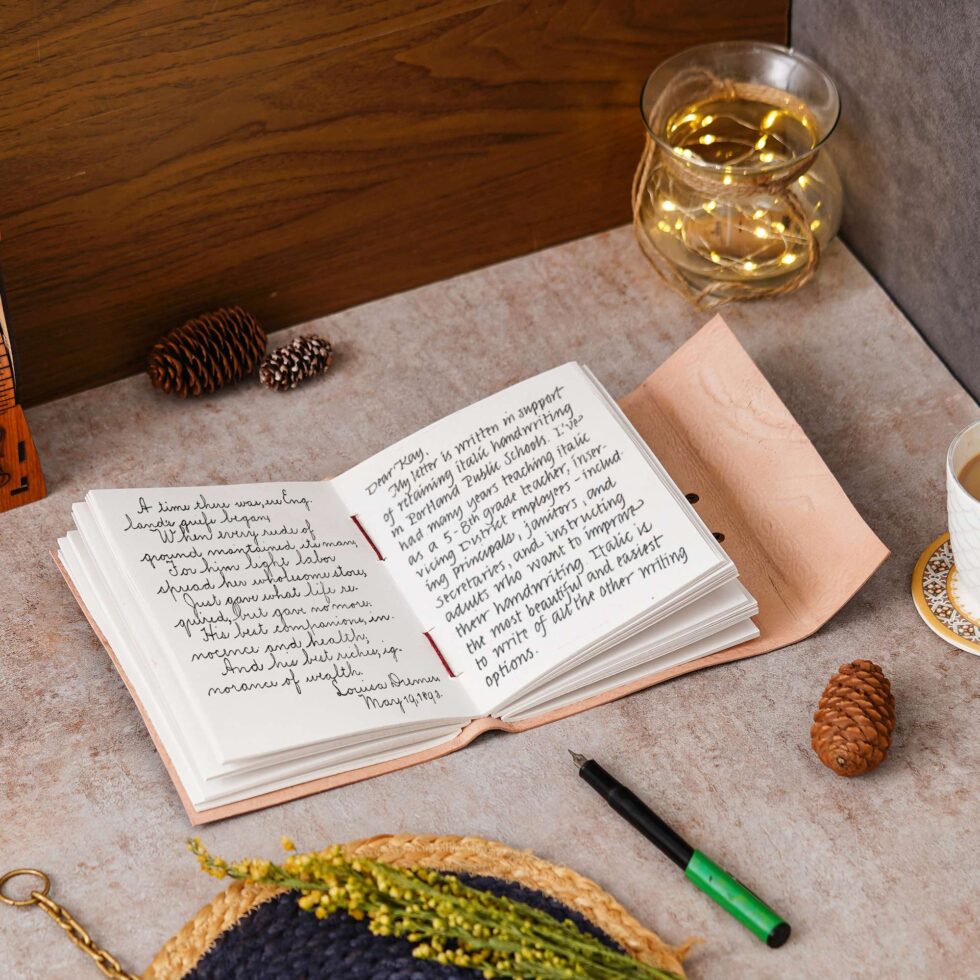 A time there was, ere Eng-
land's griefs began,
When every rood of
ground maintained its man;
For him light labor
spread her wholesome store,
Just gave what life re-
quired, but gave no more.
His best companions, in-
nocence and health,
And his best riches, ig-
norance of wealth.
Louisa Diemer
May 19, 1893.
Dear Kay,
My letter is written in support
of retaining italic handwriting
in Portland Public Schools. I've
had many years teaching italic
as a 5-8th grade teacher, inser-
vicing District employees - includ-
ing principals, janitors, and
secretaries, and instructing
adults who want to improve
their handwriting. Italic is
the most beautiful and easiest
to write of all the other writing
options.